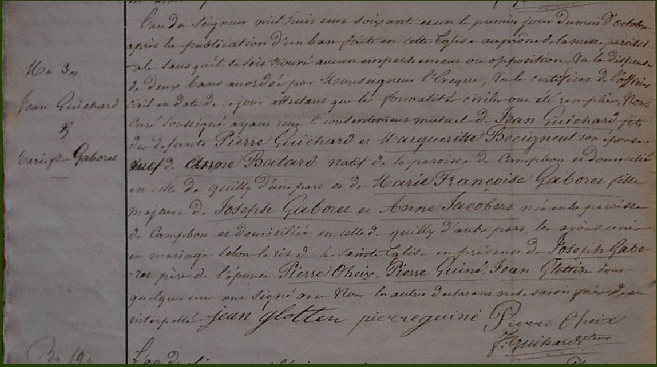 L'an du Seigneur mil huit cent soixante et un le premier jour du mois d'octobre
après la publication d'un ban faite en cette Eglise au prône de la messe paroissi
ale sans qu'il se soit trouvé aucun empêchement ou opposition, Vu la dispense
de deux bans accordée par Monseigneur l'Evêque, Vu le certificat de l'officier
civil en date de ce jour attestant que les formalités civiles ont été remplies, Nous
Curé soussigné ayant reçu le consentement mutuel de Jean Guichard fils
de defunts Pierre Guichard et Margueritte Bocigneul son épouse
veuf de Anne Batard natif de la paroisse de Campbon et domicilié
en celle de quilly d'une part et de Marie Françoise Gaborel fille
majeure de Joseph Gaborel et Anne Jacobert née en la paroisse
de Campbon et domiciliée en celle de quilly d'autre part, les avons unis
en mariage selon le rit de la Sainte Eglise en présence de Joseph Gabo-
rel père de l'épouse Pierre Oheix, Pierre Guiné, Jean Glotten dont
quelques uns ont signé avec Nous les autres déclarant ne savoir faire de ce
interpellé Jean glotten pierre guiné Pierre Oheix
Guihard
Jean Guichard
&
Gaborel